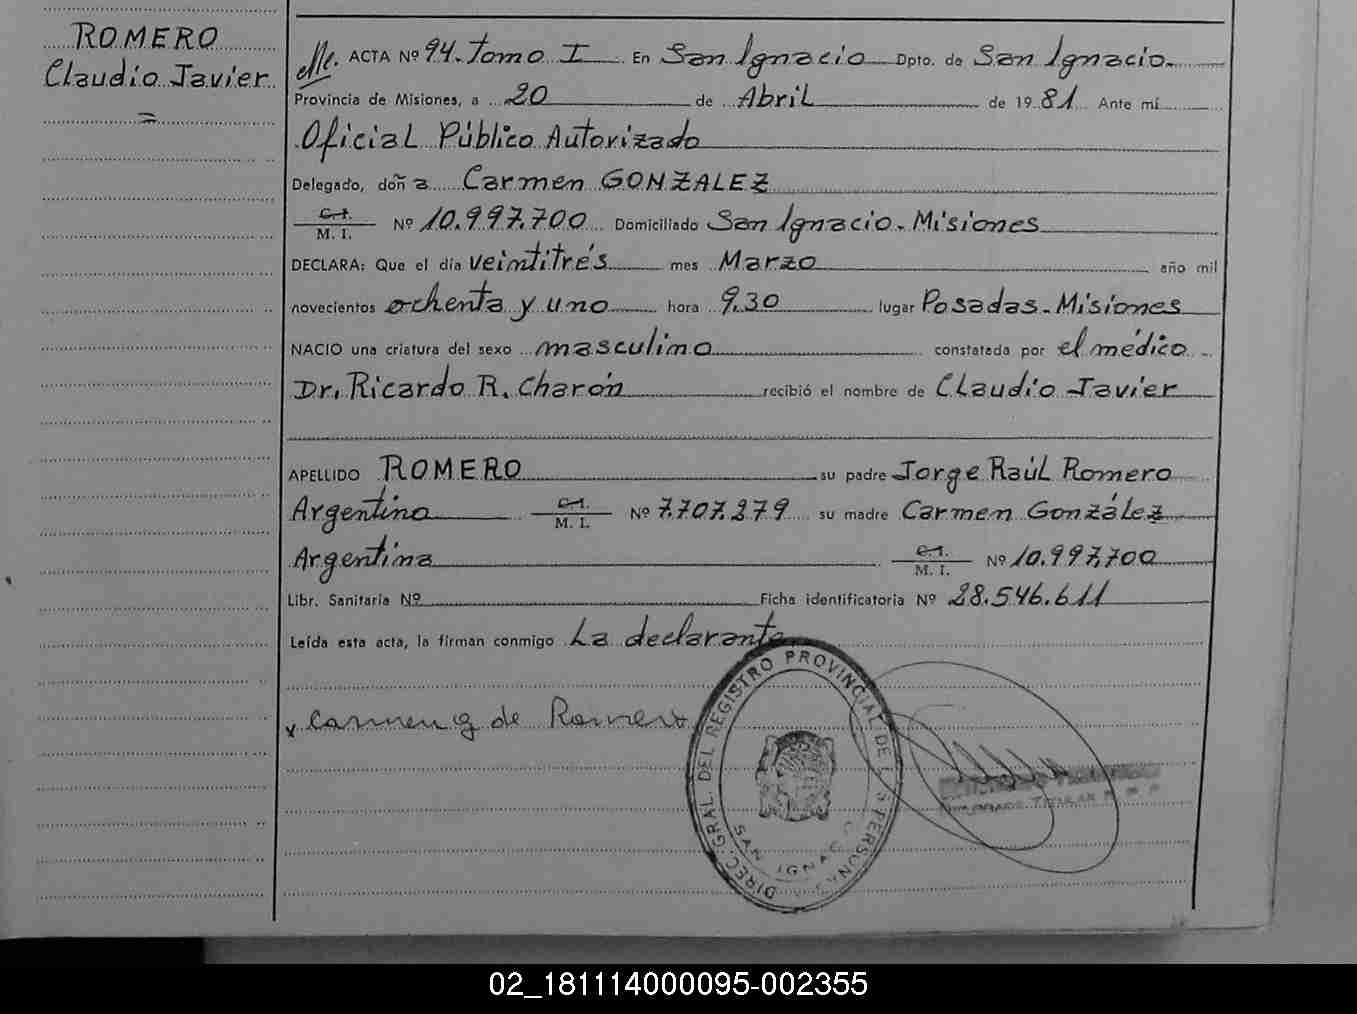 ROMERO
Claudio Javier
=
ACTA Nº 94. Tomo I En San Ignacio Dpto. de San Ignacio.
Provincia de Misiones, a 20 de Abril de 1981 Ante mí
Oficial Público Autorizado
Delegado, doña Carmen GONZALEZ
C. I.
M. I. Nº 10.997.700 Domiciliado San Ignacio. Misiones
DECLARA: Que el día veintitrés mes Marzo año mil
novecientos ochenta y uno hora 9,30 lugar Posadas. Misiones
NACIO una criatura del sexo masculino constatada por el médico
Dr. Ricardo R. Charón recibió el nombre de Claudio Javier
APELLIDO ROMERO su padre Jorge Raúl Romero
Argentino C. I.
M. I. Nº 7.707.279 su madre Carmen González
Argentina C. I.
M. I. Nº 10.997.700
Libr. Sanitaria Nº Ficha identificatoria Nº 28.546.611
Leída esta acta, la firman conmigo La declarante.
x Carmen G de Romero
DIREC. GRAL. DEL REGISTRO PROVINCIAL DE LAS PERSONAS
SAN IGNACIO
TITULAR
02_181114000095-002355